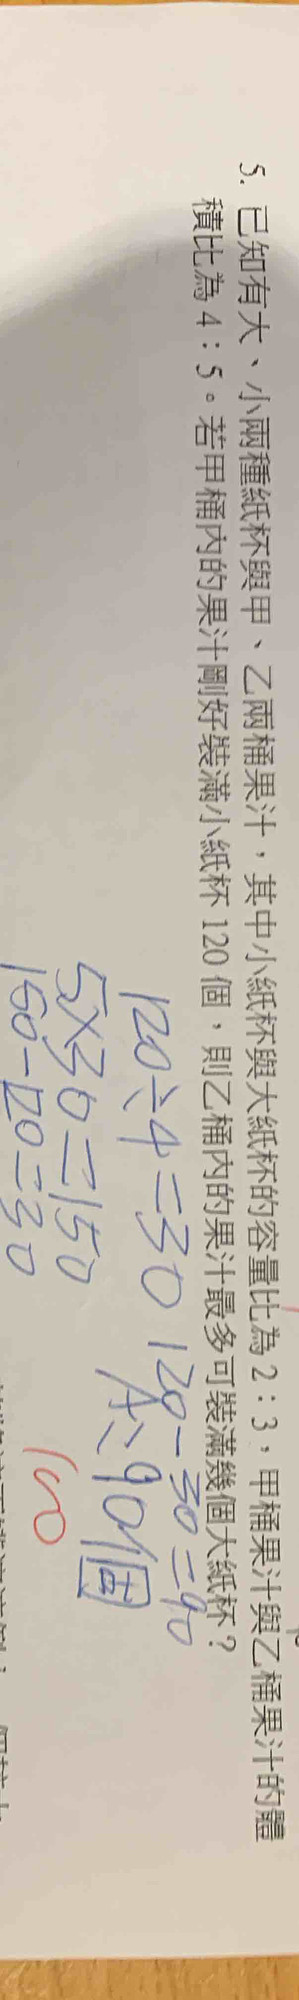 5. 已知有大、小兩種紙杯與甲、乙兩桶果汁，其中小紙杯與大紙杯的容量比為 2：3，甲桶果汁與乙桶果汁的體
積比為 4：5。若甲桶內的果汁剛好裝滿小紙杯 120 個，則乙桶內的果汁最多可裝滿幾個大紙杯？
120÷4=30 120-30=90
5×30=150 A：90個
150-120=30
100